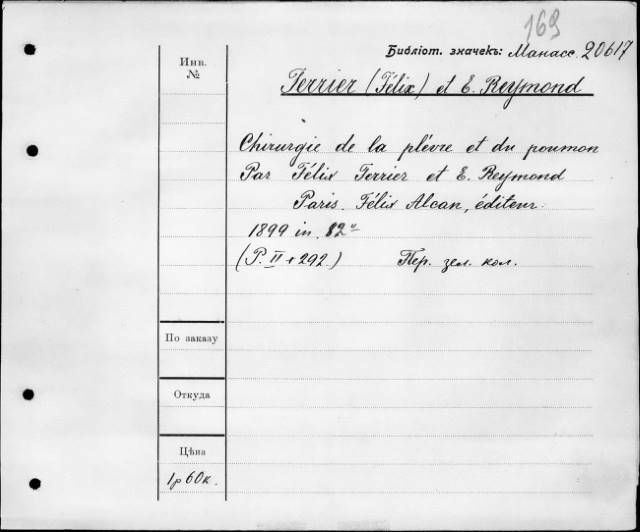 169
Библіот. значекъ: Манасс. 20617
Инв.
№
Terrier (Félix) et E. Reymond
Chirurgie de la plévre et du poumon
Par Félix Terrier et E. Reymond
Paris. Félix Alcan, éditeur.
1899 in. 82º
(P. II + 292.) Пер. зел. кол.
По заказу
Откуда
Цѣна
1р 60к.